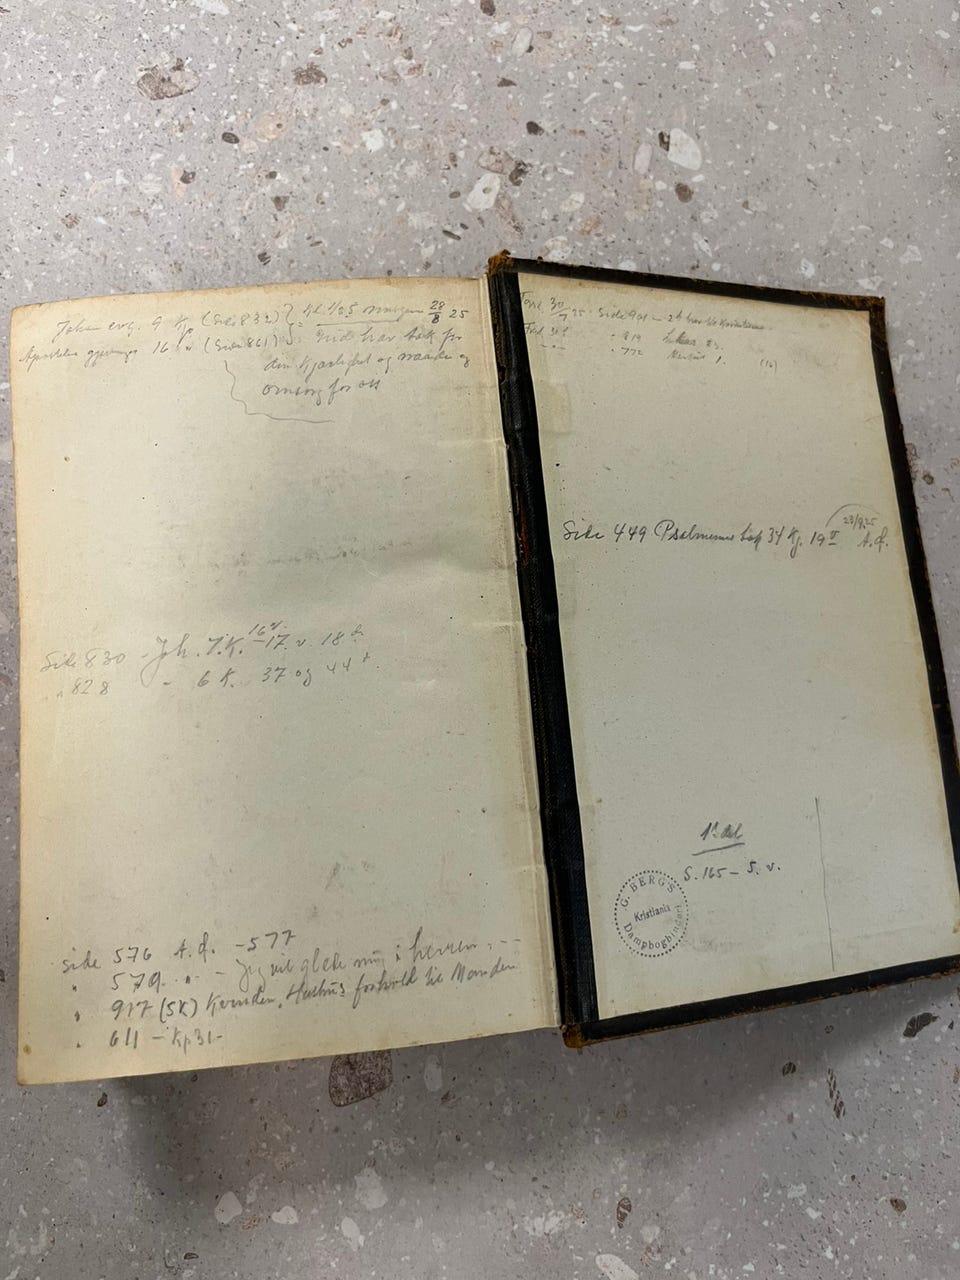 Joh. evg. 9 Kp (Side 832) } Kl. 1/2 5 morgen 28/8 25
Apostlenes gjerninger 16 " (Side 861) " : Gud har tak for
din Kjærlighet og naade og
omsorg for os
Side 830 - Joh. 7. K. 16 v. - 17. v. 18
" 828 - 6 K. 37 og 44
Side 576 A. f. - 577
" 579. " - Jeg vil glæde mig i herren. - -
" 917 (5K) Kvinden, Hustrus forhold til Manden
" 611 - Kp 31 -
30/7 25. Side 901 - 2 brev til Korintierne
" 819 Lukas 23.
" 772 1. (16)
23/9.25
Side 449 Psalmernes Kap 34 Kp. 19 v A. f.
1' del
S. 165 - S. v.
G. BERG'S
Kristiania
Dampbogbinderi